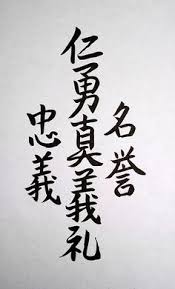 名誉
仁勇真義礼
忠義